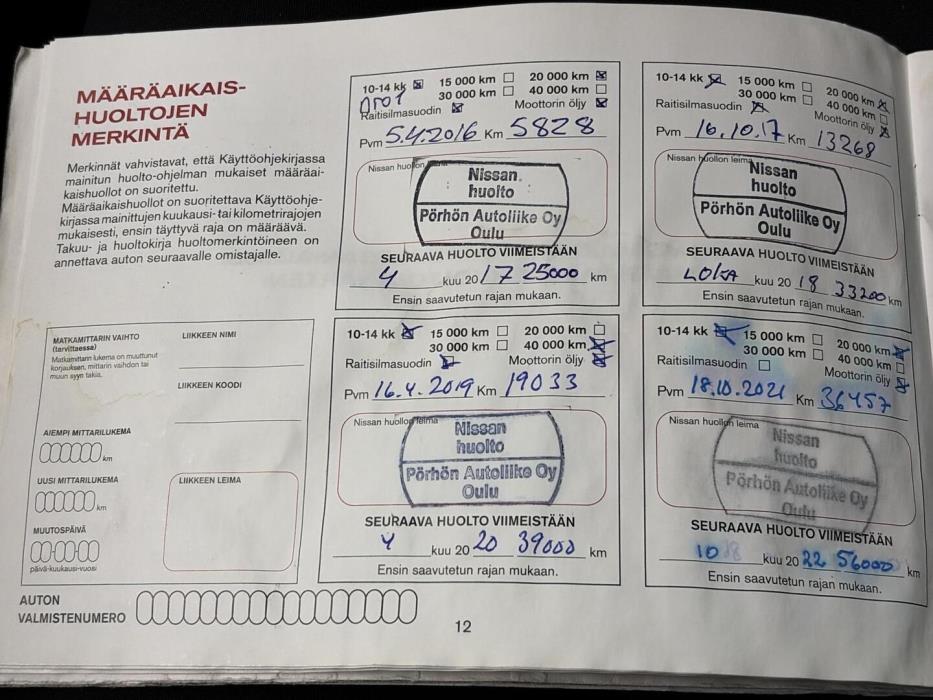 MÄÄRÄAIKAIS-
HUOLTOJEN
MERKINTÄ
Merkinnät vahvistavat, että Käyttöohjekirjassa
mainitun huolto-ohjelman mukaiset määräai-
kaishuollot on suoritettu.
Määräaikaishuollot on suoritettava Käyttöohje-
kirjassa mainittujen kuukausi- tai kilometrirajojen
mukaisesti, ensin täyttyvä raja on määräävä.
Takuu- ja huoltokirja huoltomerkintöineen on
annettava auton seuraavalle omistajalle.
10-14 kk 15 000 km 20 000 km
30 000 km 40 000 km
Raitisilmasuodin Moottorin öljy
Pvm 5.4.2016 Km 5828
Nissan huollon
Nissan
huolto
Pörhön Autoliike Oy
Oulu
SEURAAVA HUOLTO VIIMEISTÄÄN
4 kuu 20 17 25000 km
Ensin saavutetun rajan mukaan.
10-14 kk 15 000 km 20 000 km
30 000 km 40 000 km
Raitisilmasuodin Moottorin öljy
Pvm 16.10.17 Km 13268
Nissan huollon leima
Nissan
huolto
Pörhön Autoliike Oy
Oulu
SEURAAVA HUOLTO VIIMEISTÄÄN
LOKA kuu 20 18 33200 km
Ensin saavutetun rajan mukaan.
MATKAMITTARIN VAIHTO
(tarvittaessa)
Matkamittarin lukema on muuttunut
korjauksen, mittarin vaihdon tai
muun syyn takia.
LIIKKEEN NIMI
LIIKKEEN KOODI
AIEMPI MITTARILUKEMA
km
UUSI MITTARILUKEMA
km
LIIKKEEN LEIMA
MUUTOSPÄIVÄ
päivä-kuukausi-vuosi
10-14 kk 15 000 km 20 000 km
30 000 km 40 000 km
Raitisilmasuodin Moottorin öljy
Pvm 16.4.2019 Km 19033
Nissan huollon leima
Nissan
huolto
Pörhön Autoliike Oy
Oulu
SEURAAVA HUOLTO VIIMEISTÄÄN
4 kuu 20 20 39000 km
Ensin saavutetun rajan mukaan.
10-14 kk 15 000 km 20 000 km
30 000 km 40 000 km
Raitisilmasuodin Moottorin öljy
Pvm 18.10.2021 Km 36457
Nissan huollon leima
Nissan
huolto
Pörhön Autoliike Oy
Oulu
SEURAAVA HUOLTO VIIMEISTÄÄN
10 kuu 20 22 56000 km
Ensin saavutetun rajan mukaan.
AUTON
VALMISTENUMERO
12